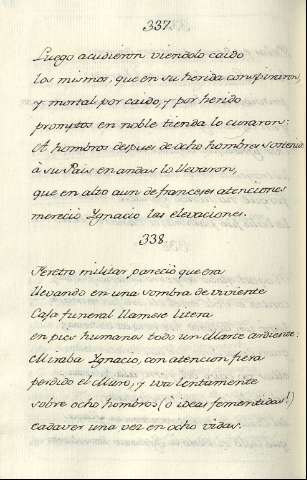 337.
Luego acudieron viendolo caido
los mismos, que en su herida conspiraron,
y mortal por caido, y por herido
promptos en noble tienda lo curaron:
A hombros despues de ocho hombres
à su Pais en andas lo llevaron,
que en alto aun de franceses atenciones
mereciò Ygnacio las elevaciones.
338.
Feretro militar pareciò que era
llevando en una sombra de viviente
Caja funeral llamese litera
en pies humanos todo un Marte ardiente:
Miraba Ygnacio, con atencion fiera
perdido el Muro, y iva lentamente
sobre ocho hombros (ò ideas fementidas!)
Cadaver una vez en ocho vidas.